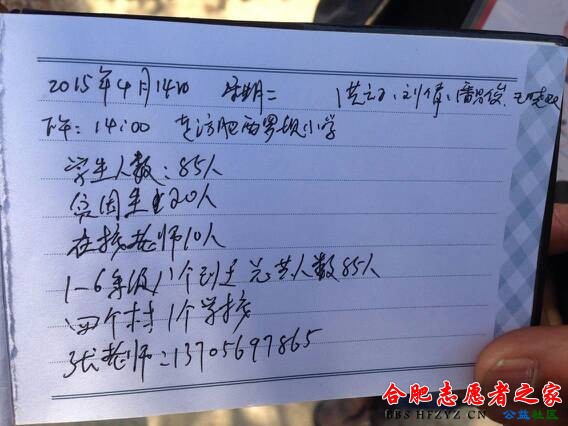 2015年4月14日 星期二 洪云、刘倩、
下午:14:00 走访肥西罗坝小学
学生人数:85人
贫困生20人
在校老师10人
1-6年级 总共人数85人
四个村1个学校
张老师:13705697865
合肥志愿者之家
BBS.HFZYZ.CN 公益社区